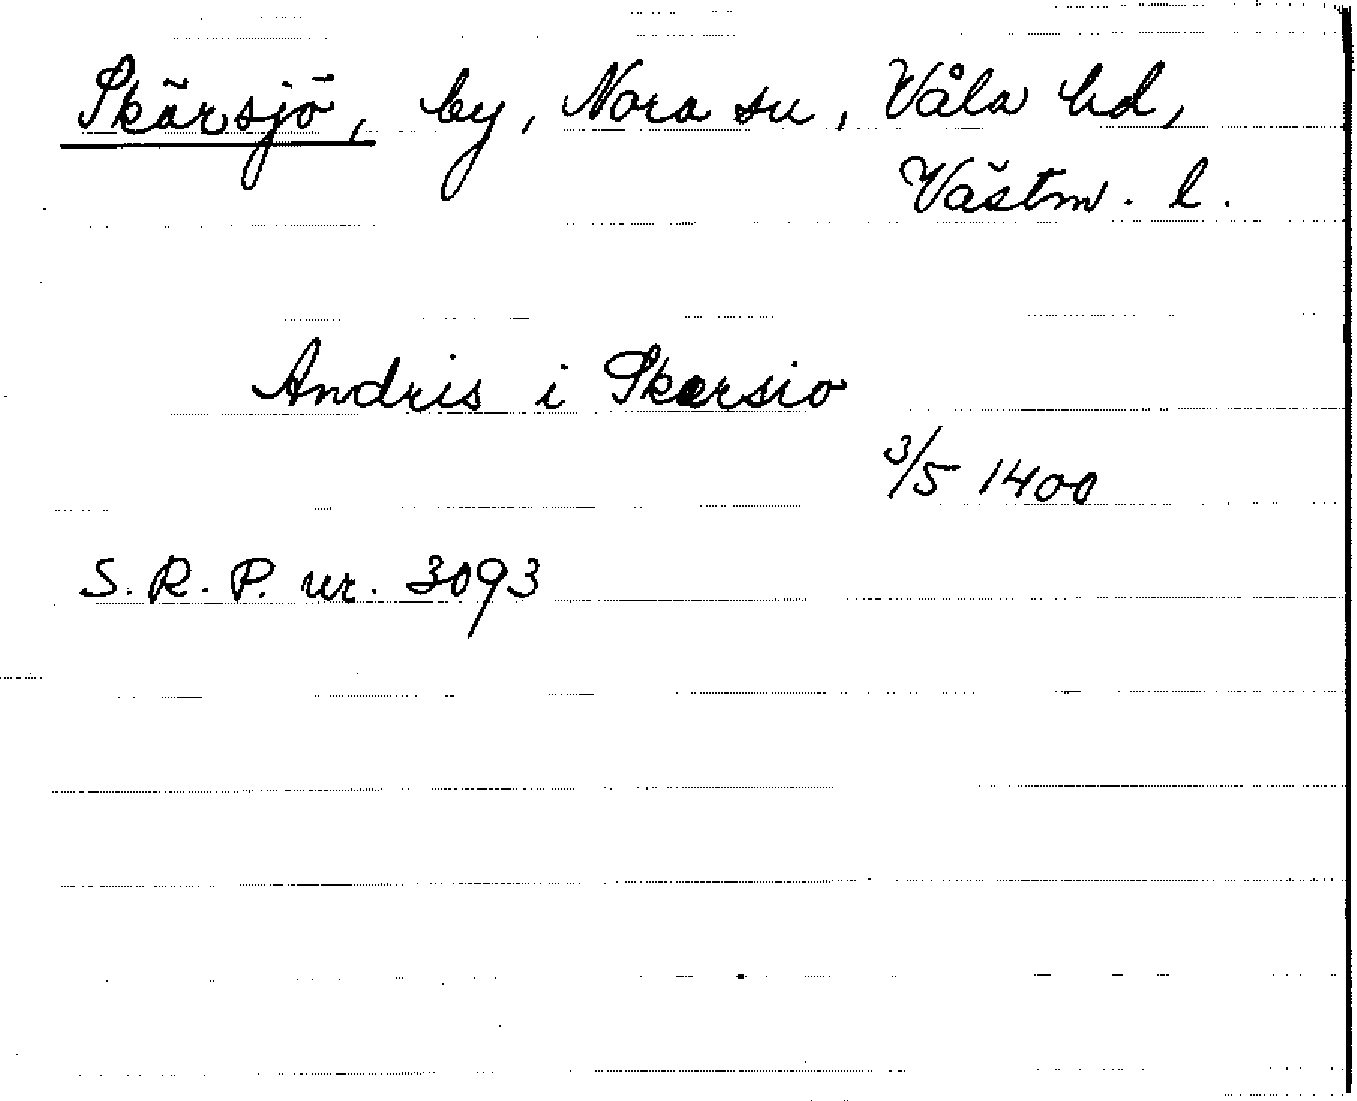 Skärsjö, by, Nora sn, Våla hd,
Västm. l.
Andris i Skærsio
3/5 1400
S.R.P. nr. 3093